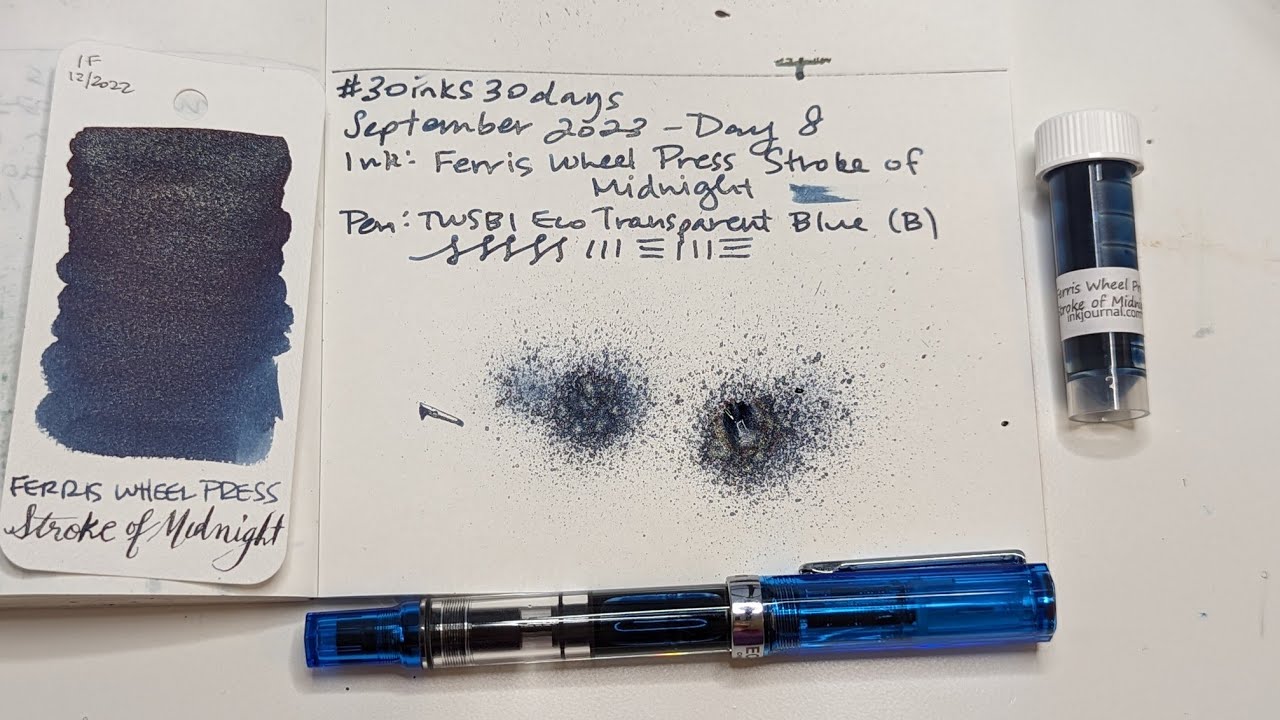 IF
12/2022
FERRIS WHEEL PRESS
Stroke of Midnight
#30inks30days
September 2023 - Day 8
Ink: Ferris Wheel Press Stroke of
Midnight
Pen: TWSBI Eco Transparent Blue (B)
Ferris Wheel Pr
Stroke of Midni
inkjournal.com
EC